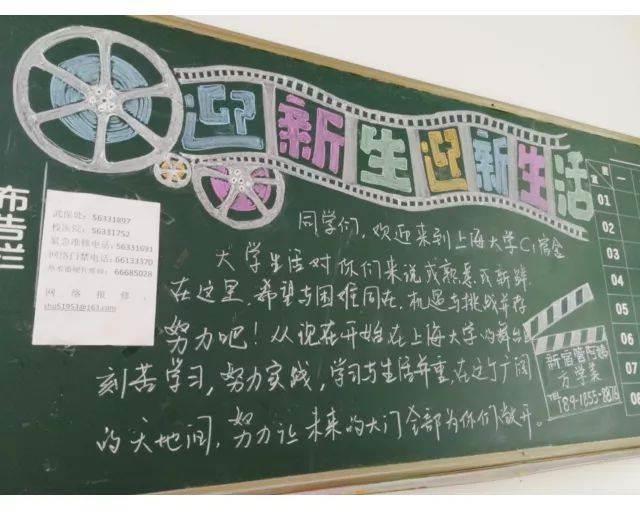 迎新生迎新生活
布告栏
武保处:56331897
校医院:56331752
紧急维修电话:56331691
网络门禁电话:66133370
66685028
网络报修:
shu51953@163.com
同学们,欢迎来到上海大学C1宿舍
大学生活对你们来说或熟悉或新鲜.
在这里,希望与困难同在,机遇与挑战并存
努力吧!从现在开始在上海大学的舞台
刻苦学习,努力实战,学习与生活并重,在这个广阔
的天地间,努力让未来的大门全部为你们敞开。
01
02
03
04
05
06
07
08
一
新宿管
方学英
189-1855-